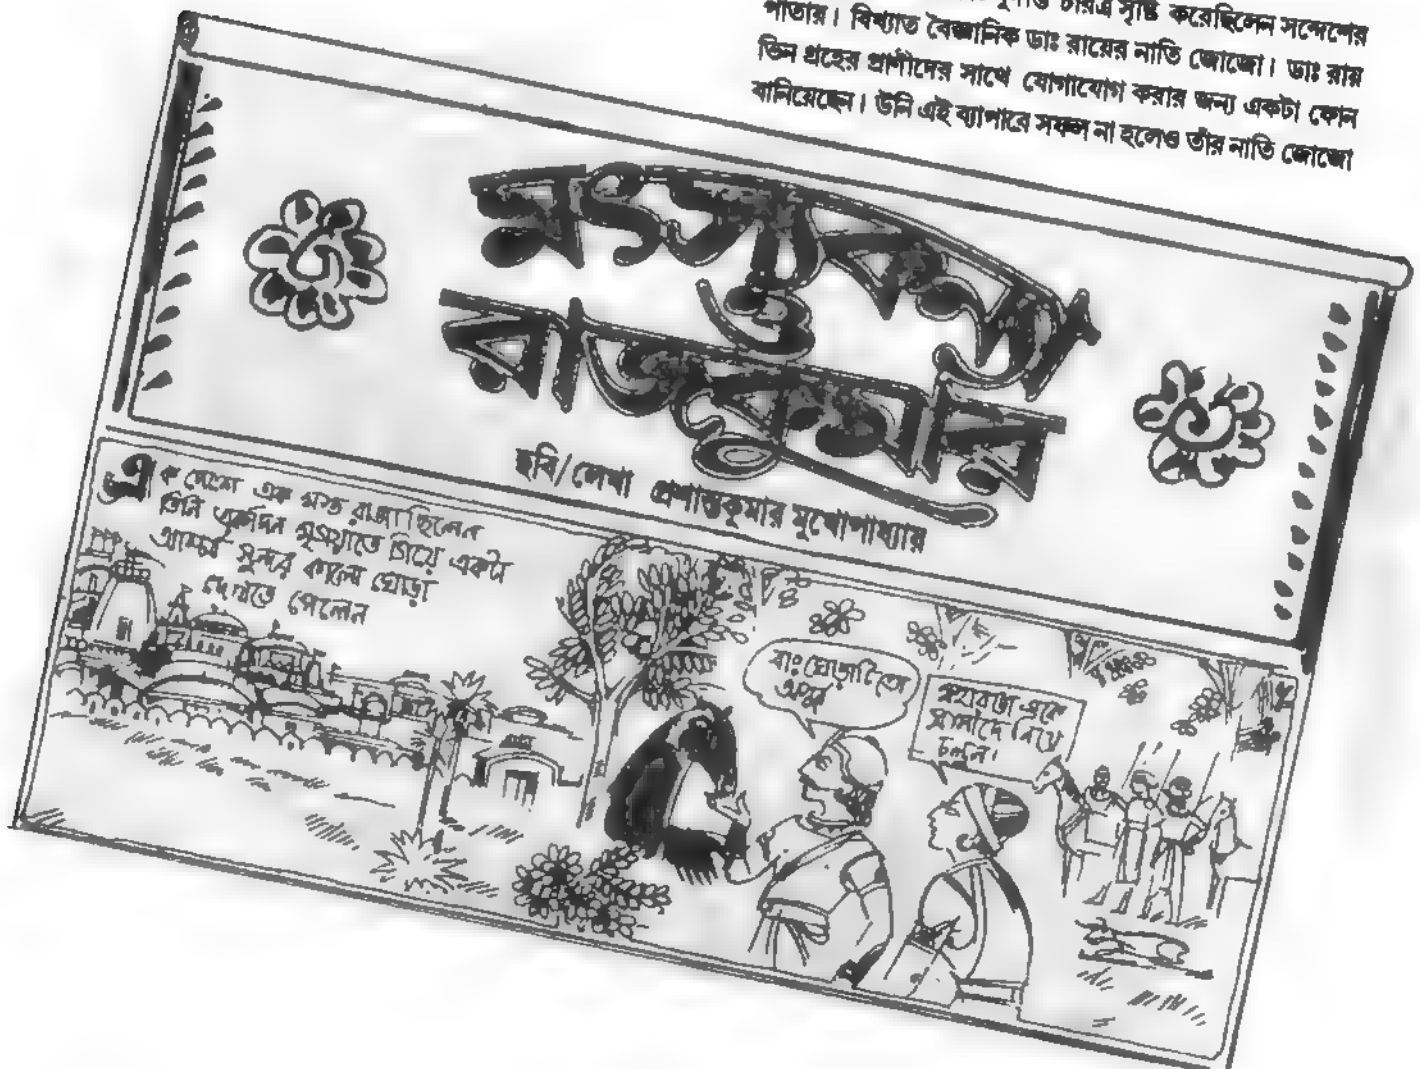 চরিত্র সৃষ্টি করেছিলেন সন্দেশের
পাতায়। বিখ্যাত বৈজ্ঞানিক ডাঃ রায়ের নাতি জোজো। ডাঃ রায়
ভিন গ্রহের প্রাণীদের সাথে যোগাযোগ করার জন্য একটা ফোন
বানিয়েছেন। উনি এই ব্যাপারে সফল না হলেও তাঁর নাতি জোজো
মৎস্যকন্যা
ও
রাজকুমার
ছবি/লেখা প্রশান্তকুমার মুখোপাধ্যায়
এক দেশে এক মস্ত রাজা ছিলেন
তিনি একদিন মৃগয়াতে গিয়ে একটা
আশ্চর্য সুন্দর কালো ঘোড়া
দেখতে পেলেন
বাঃ ঘোড়াটা তো
অপূর্ব
মহারাজা একে
প্রাসাদে নিয়ে
চলুন।